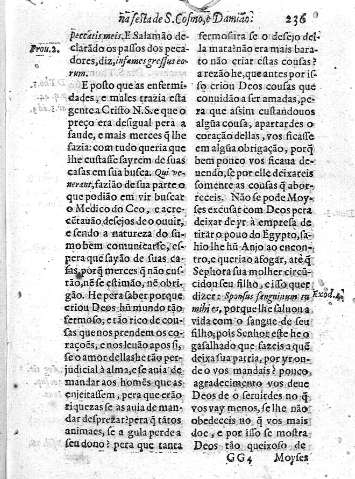 na festa de S. Cosmo, e Damião. 236
pectatis meis. E Salamão de-
Prou. 2. clarãdo os passos dos peca-
dores, diz, infames gressus eo-
rum.
E posto que as enfermi-
dades, e males trazia esta
gente a Cristo N. S. e que o
preço era desigual pera a
saude, e mais merces q̃ lhe
fazia: com tudo queria que
lhe custasse sayrem de suas
casas em sua busca. Qui ve-
nerant, fazião de sua parte o
que podião em vir buscar
o Medico do Ceo, e acre-
cẽtauão desejos de o ouuir,
e sendo a natureza do su-
mo bem comunicarse, es-
pera que sayão de suas ca-
sas, porq̃ merces q̃ não cus-
tão, nẽ se estimão, nẽ obri-
gão. He pera saber porque
criou Deos hũ mundo tão
fermoso, e tão rico de cou-
sas que nos prendem os co-
rações, e nos leuão apos si,
se o amor dellas he tão per-
judicial à alma, e se auia de
mandar aos homẽs que as
enjeitassem, pera que erão
riquezas se as auia de man-
dar desprezar? pera q̃ tãtos
animaes, se a gula perde a
seu dono? pera que tanta
fermosura se o desejo del-
la mata? não era mais bara-
to não criar estas cousas?
a rezão he, que antes por is-
so criou Deos cousas que
conuidão a ser amadas, pe-
ra que assim custandouos
algũa cousa, apartardes o
coração dellas, vos ficasse
em algũa obrigação, porq̃
bem pouco vos ficaua de-
uendo, se por elle deixareis
somente as cousas q̃ abor-
receis. Não se pode Moy-
ses excusar com Deos pera
deixar de yr à empresa de
titar o pouo do Egypto, sa-
hio lhe hũ Anjo ao encon-
tro, e queria o afogar, atè q̃
Sephora sua molher circũ-
cidou seu filho, e isso quer
dizer: Sponsus sanguinum tu Exod. 4.
mihi es, porque lhe saluou a
vida com o sangue de seu
filho, pois Senhor este he o
gasalhado que fazeis a quẽ
deixa sua patria, por yr on-
de o vos mandais? pouco
agradecimento vos deue
Deos de o seruirdes no q̃
vos vay menos, se lhe não
obedeceis no q̃ vos mais
doe, e por isso se mostra
Deos tão queixoso de
GG4 Moyses